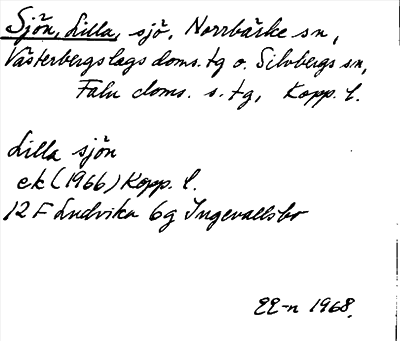 Sjön, Lilla, sjö, Norrbärke sn,
Västerbergslags doms. tg o. Silvbergs sn,
Falu doms. s. tg, Kopp. l.
Lilla sjön
ek (1966) Kopp. l.
12 F Ludvika 6g Ingevallsbo
EE-n 1968.